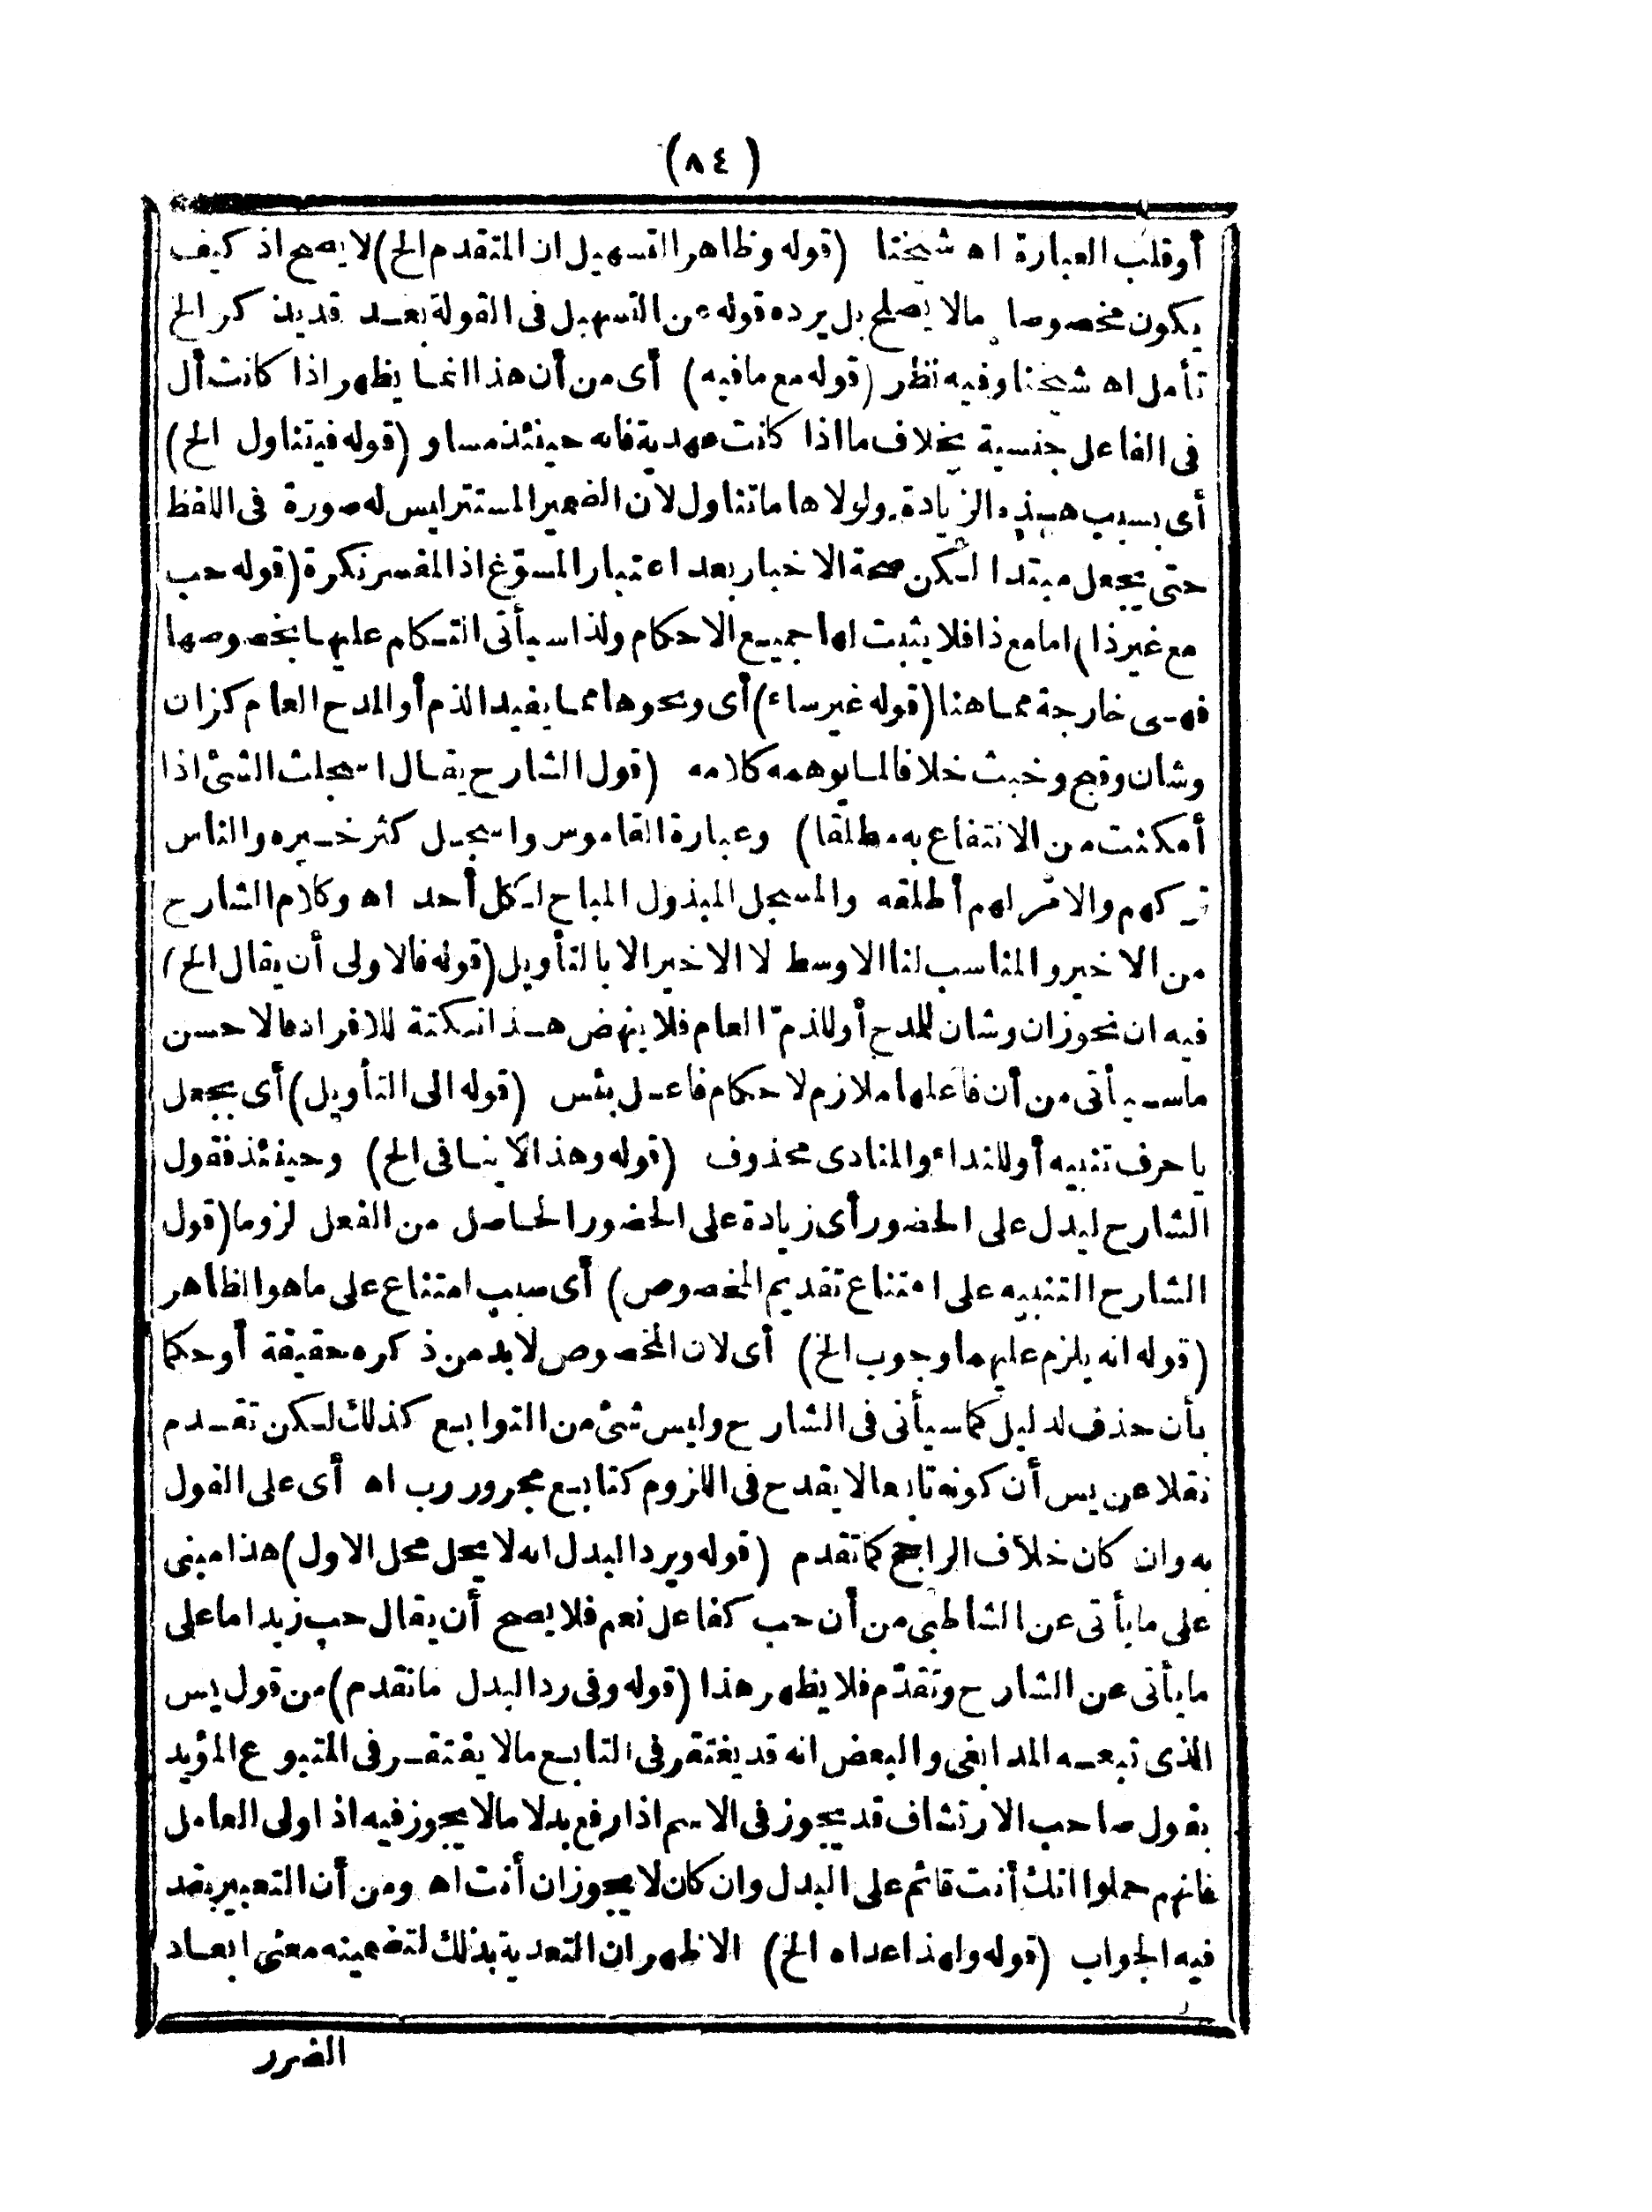 (٨٤)
أوقلب العبارة اه شيخنا (قوله وظاهر التسهيل ان المتقدم الخ) لا يصح اذ كيف
يكون مخصوصا مالا يصلح بل يرده قوله عن التسهيل فى القولة بعد قد يذكر الخ
تأمل اه شيخنا وفيه نظر (قوله مع مافيه) أى من أن هذا انما يظهر اذا كانت أل
فى الفاعل جنسية بخلاف ما اذا كانت عهدية فانه حينئذ مساو (قوله فيتناول الخ)
أى بسبب هذه الزيادة ولولاها ما تناول لان الضمير المستتر ليس له صورة فى اللفظ
حتى يجعل مبتدا لكن صحة الاخبار بعد اعتبار المسوّغ اذ المفسر نكرة (قوله حب
مع غير ذا) اما مع ذا فلا يثبت لها جميع الاحكام ولذا سيأتى التكلم عليها بخصوصها
فهى خارجة مما هنا (قوله غير ساء) أى ونحوها مما يفيد الذم أو المدح العام كزان
وشان وقبح وخبث خلافا لما يوهمه كلامه (قول الشارح يقال اسجلت الشئ اذا
أمكنت من الانتفاع به مطلقا) وعبارة القاموس واسجل كثر خيره والناس
تركهم والامر لهم أطلقه والمسجل المبذول المباح لكل أحد اه وكلام الشارح
من الاخير والمناسب لنا الاوسط لا الاخير الا بالتأويل (قوله فالاولى أن يقال الخ)
فيه ان نحو زان وشان للمدح أو للذمّ العام فلا ينهض هذا نكتة للافراد فالاحسن
ما سيأتى من أن فاعلها ملازم لاحكام فاعل بئس (قوله الى التأويل) أى بجعل
يا حرف تنبيه أو للنداء والمنادى محذوف (قوله وهذا لا ينافى الخ) وحينئذ فقول
الشارح ليدل على الحضور أى زيادة على الحضور الحاصل من الفعل لزوما (قول
الشارح التنبيه على امتناع تقديم المخصوص) أى سبب امتناع على ما هو الظاهر
(قوله انه يلزم عليهما وجوب الخ) أى لان المخصوص لا بد من ذكره حقيقة أو حكما
بأن حذف لدليل كما سيأتى فى الشارح وليس شئ من التوابع كذلك لكن تقدم
نقلا عن يس أن كونه تابعا لا يقدح فى اللزوم كتابع مجرور رب اه أى على القول
به وان كان خلاف الراجح كما تقدم (قوله ويرد البدل انه لا يحل محل الاول) هذا مبنى
على ما يأتى عن الشاطبى من أن حب كفاعل نعم فلا يصح أن يقال حب زيد اما على
ما يأتى عن الشارح وتقدّم فلا يظهر هذا (قوله وفى رد البدل ما تقدم) من قول يس
الذى تبعه المدابغى والبعض انه قد يغتفر فى التابع مالا يغتفر فى المتبوع المؤيد
بقول صاحب الارتشاف قد يجوز فى الاسم اذا رفع بدلا مالا يجوز فيه اذا ولى العامل
فانهم حملوا انك أنت قائم على البدل وان كان لا يجوز ان أنت اه ومن أن التعبير بقد
فيه الجواب (قوله ولهذا عداه الخ) الاظهر ان التعدية بذلك لتضمينه معنى ابعاد
الضرر